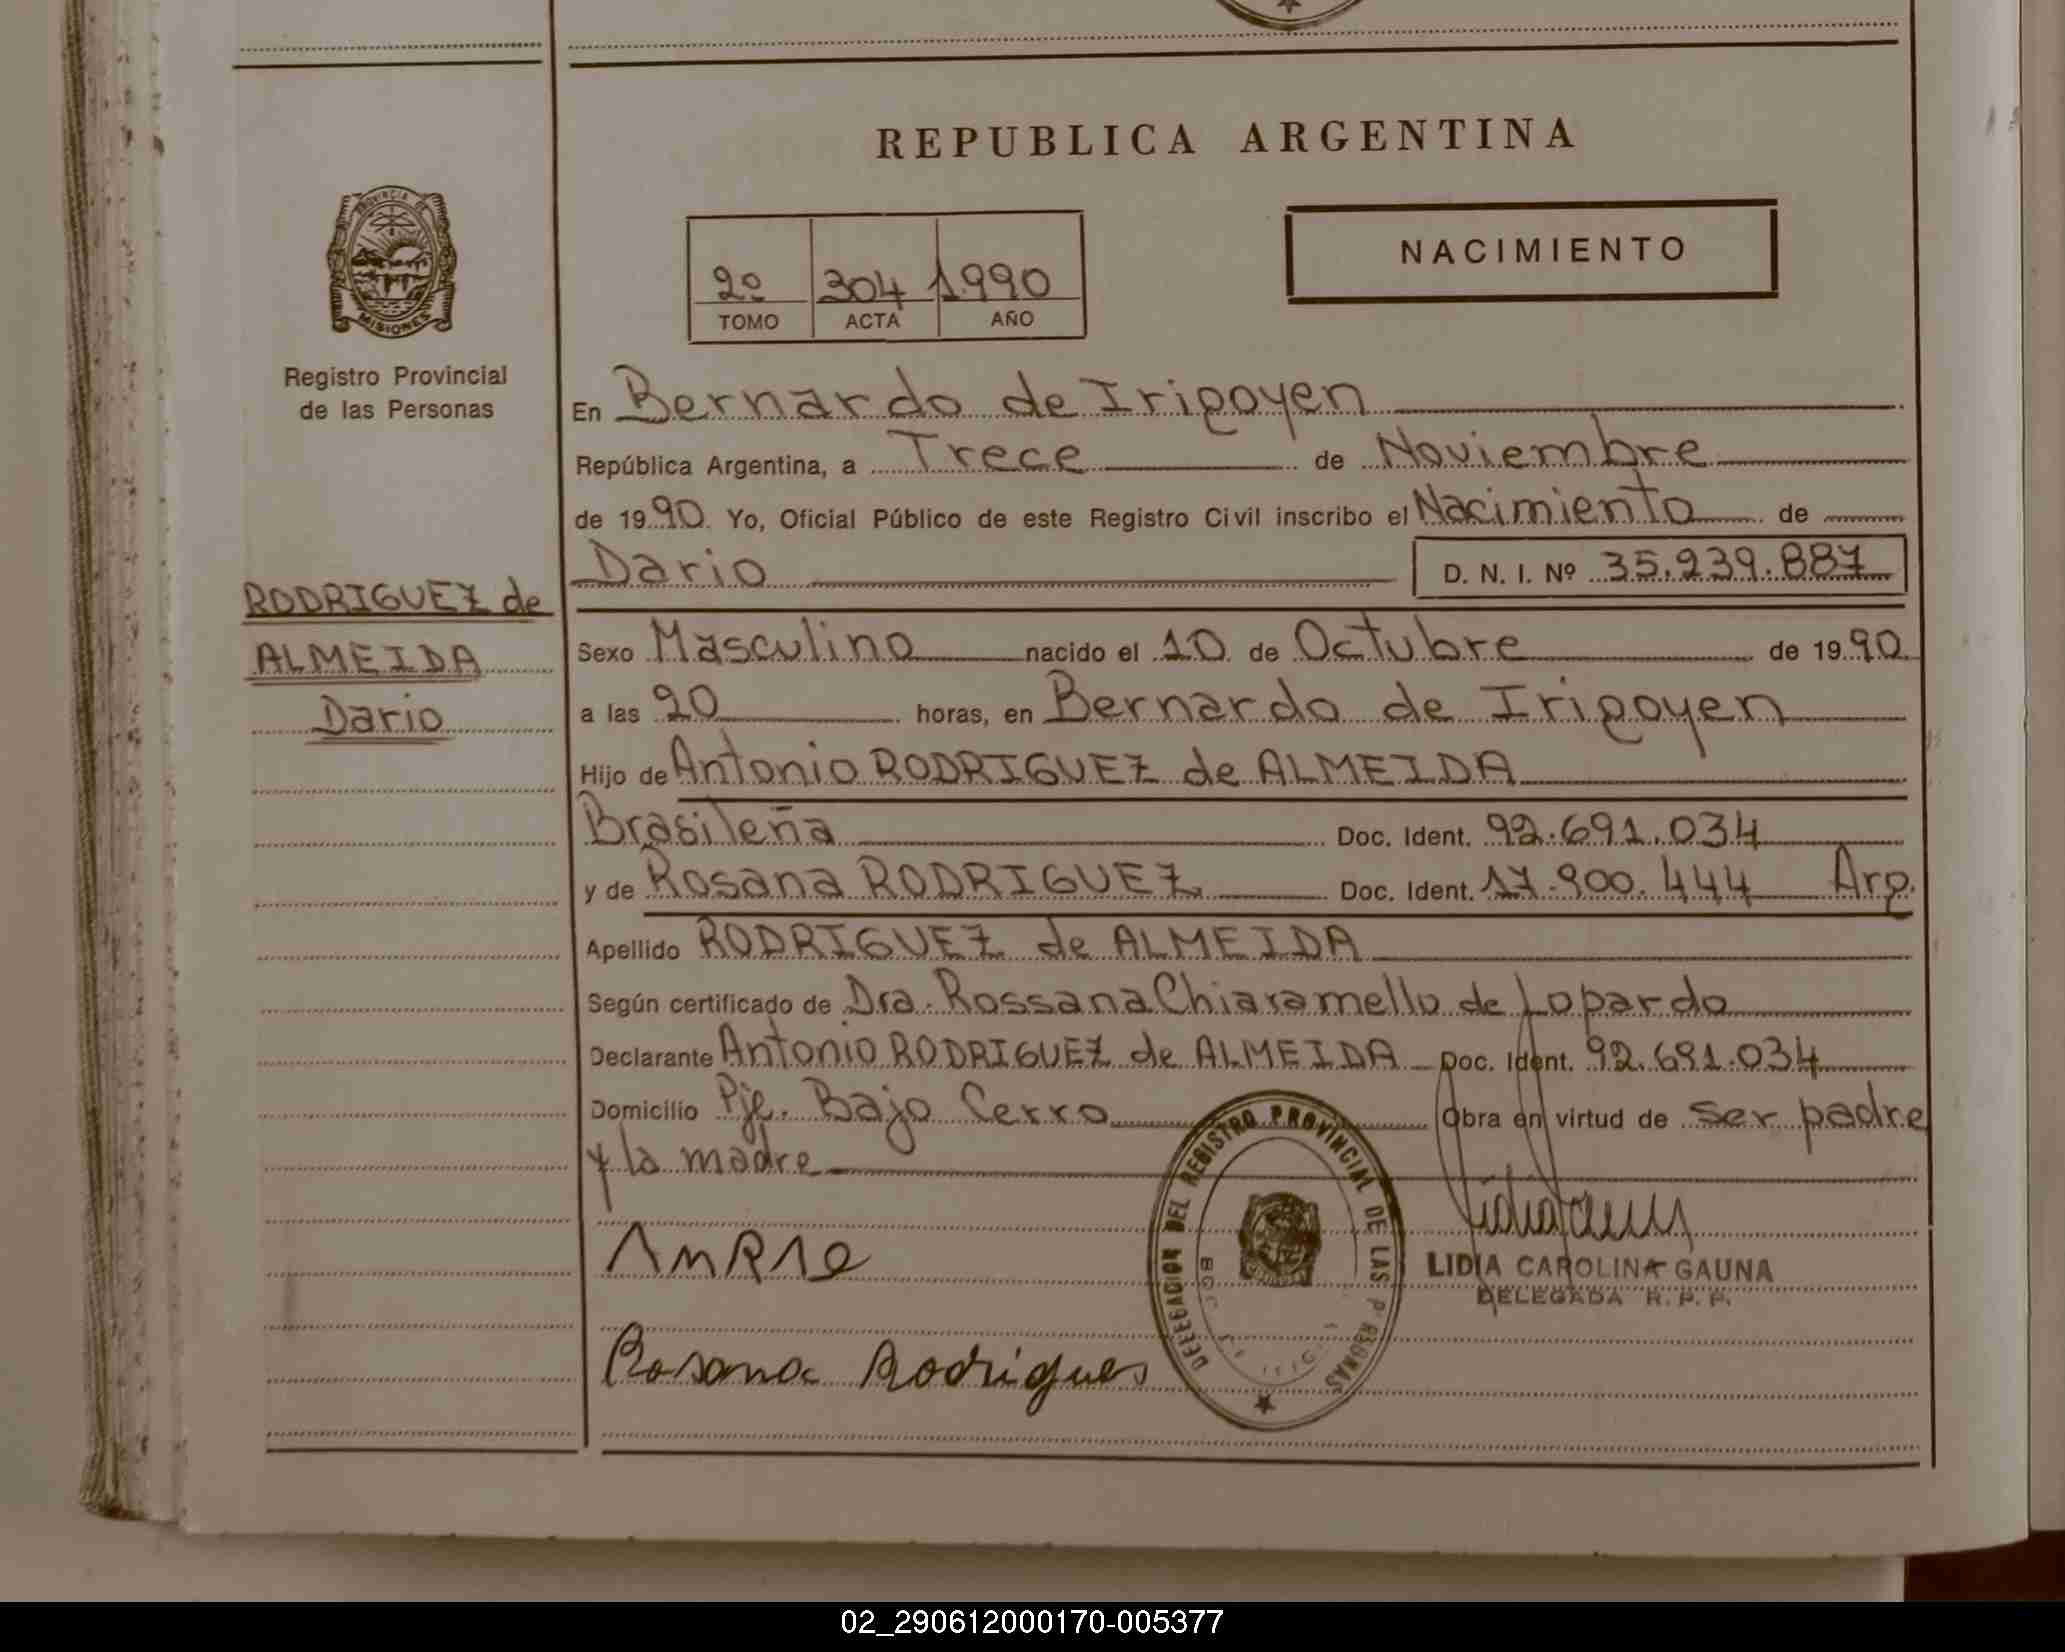 REPUBLICA ARGENTINA
NACIMIENTO
2º 304 1990
TOMO ACTA AÑO
PROVINCIA DE
MISIONES
Registro Provincial
de las Personas
RODRIGUEZ de
ALMEIDA
Dario
En Bernardo de Irigoyen
República Argentina, a Trece de Noviembre
de 1990. Yo, Oficial Público de este Registro Civil inscribo el Nacimiento de
Dario D. N. I. Nº 35.239.887
Sexo Masculino nacido el 10 de Octubre de 1990
a las 20 horas, en Bernardo de Irigoyen
Hijo de Antonio RODRIGUEZ de ALMEIDA
Brasileña Doc. Ident. 92.691.034
y de Rosana RODRIGUEZ Doc. Ident. 17.900.444 Arg.
Apellido RODRIGUEZ de ALMEIDA
Según certificado de Dra. Rossana Chiaramello de Lopardo
Declarante Antonio RODRIGUEZ de ALMEIDA Doc. Ident. 92.691.034
Domicilio Pje. Bajo Cerro Obra en virtud de ser padre
y la madre
DELEGACION DEL REGISTRO PROVINCIAL DE LAS PERSONAS
LIDIA CAROLINA GAUNA
DELEGADA R. P. P.
Rosana Rodrigues
02_290612000170-005377